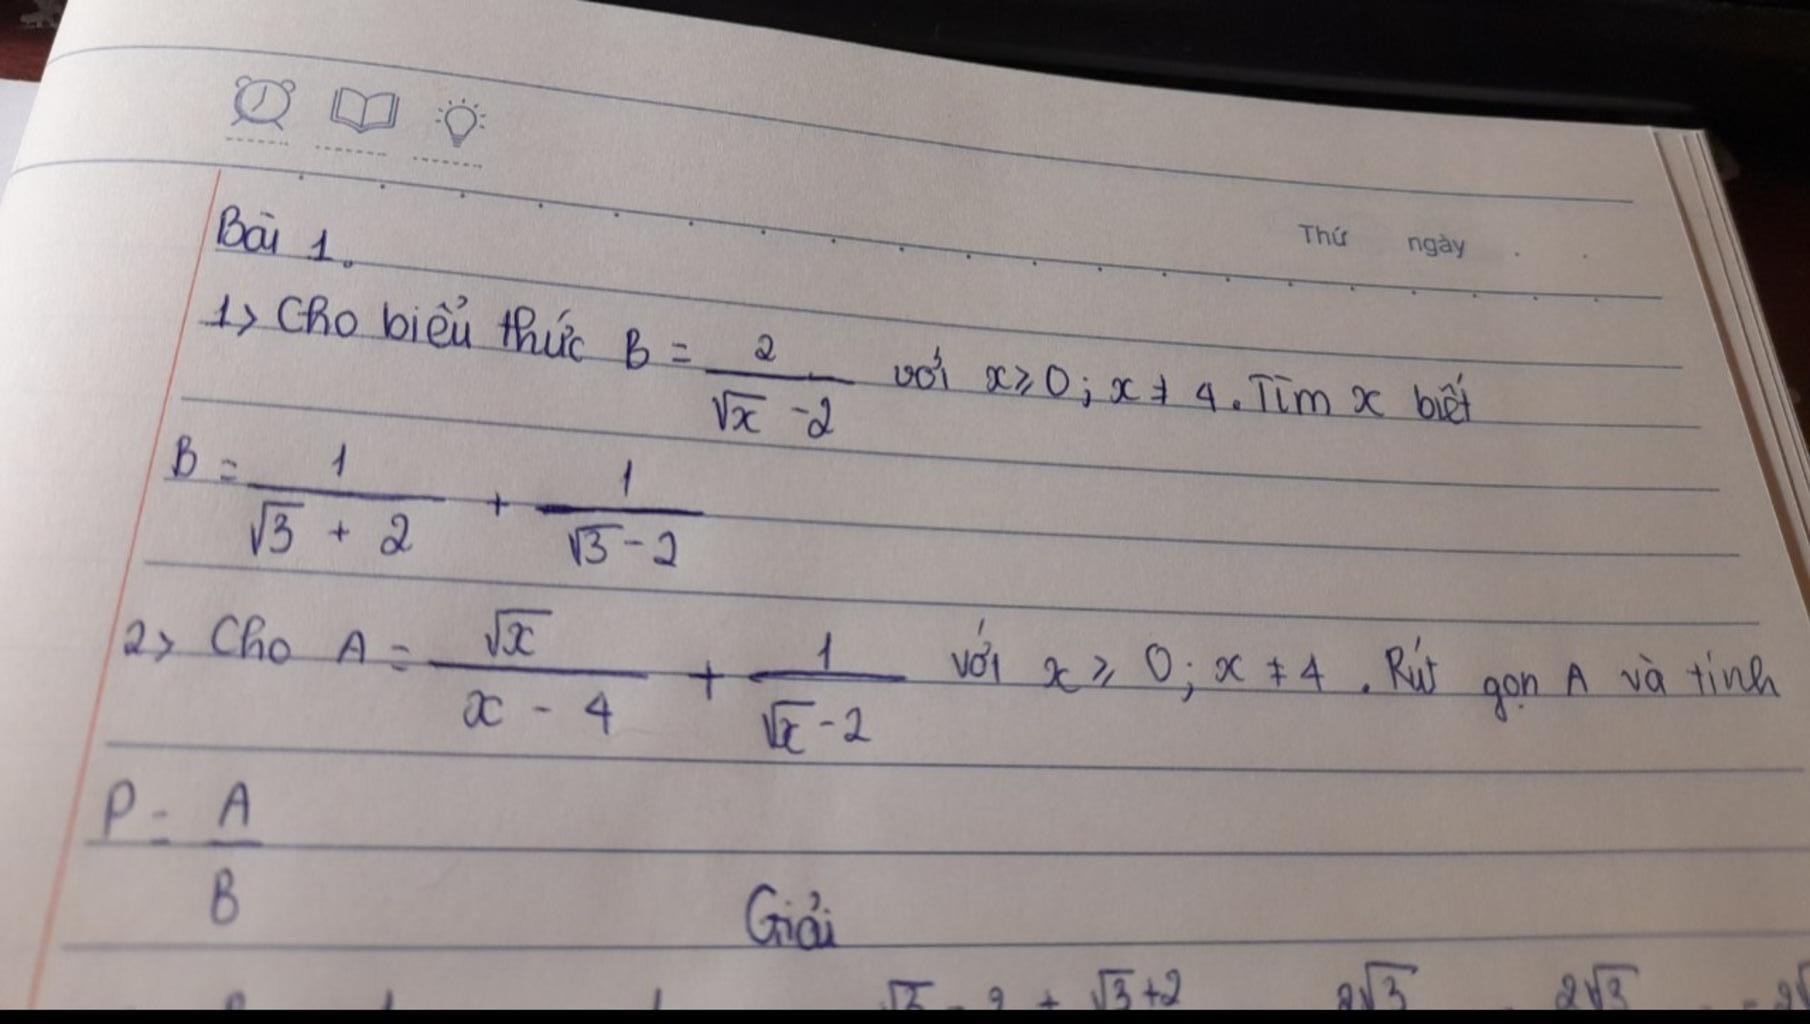 Thứ ngày
Bài 1.
1> Cho biểu thức B = 2/(√x - 2) với x ≥ 0; x ≠ 4. Tìm x biết
B = 1/(√3 + 2) + 1/(√3 - 2)
2> Cho A = √x/(x - 4) + 1/(√x - 2) với x ≥ 0; x ≠ 4. Rút gọn A và tính
P = A/B
Giải
√3 - 2 + √3 + 2 2√3 2√3